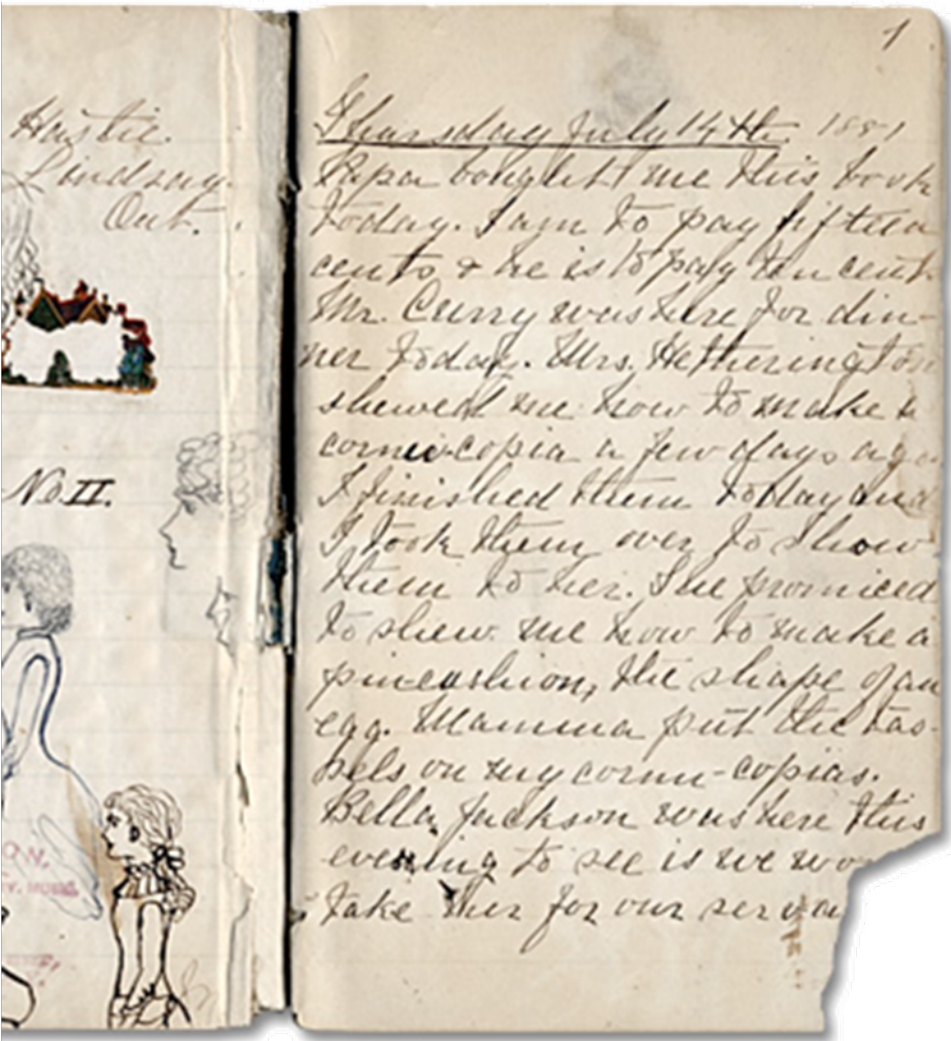 Hastie
Lindsay.
Ont.
No. II.
1
Thursday July 14th. 1881
Papa bought me this book
today. I am to pay fifteen
cents & he is to pay ten cents
Mr. Curry was here for din-
ner today. Mrs. Hetherington
shewed me how to make a
cornucopia a few days ago.
I finished them today and
I took them over to show
them to her. She promiced
to shew me how to make a
pincushion, the shape of an
egg. Mamma put the tas-
sels on my cornu-copias.
Bella Jackson was here this
evening to see is we wo
take her for our serva